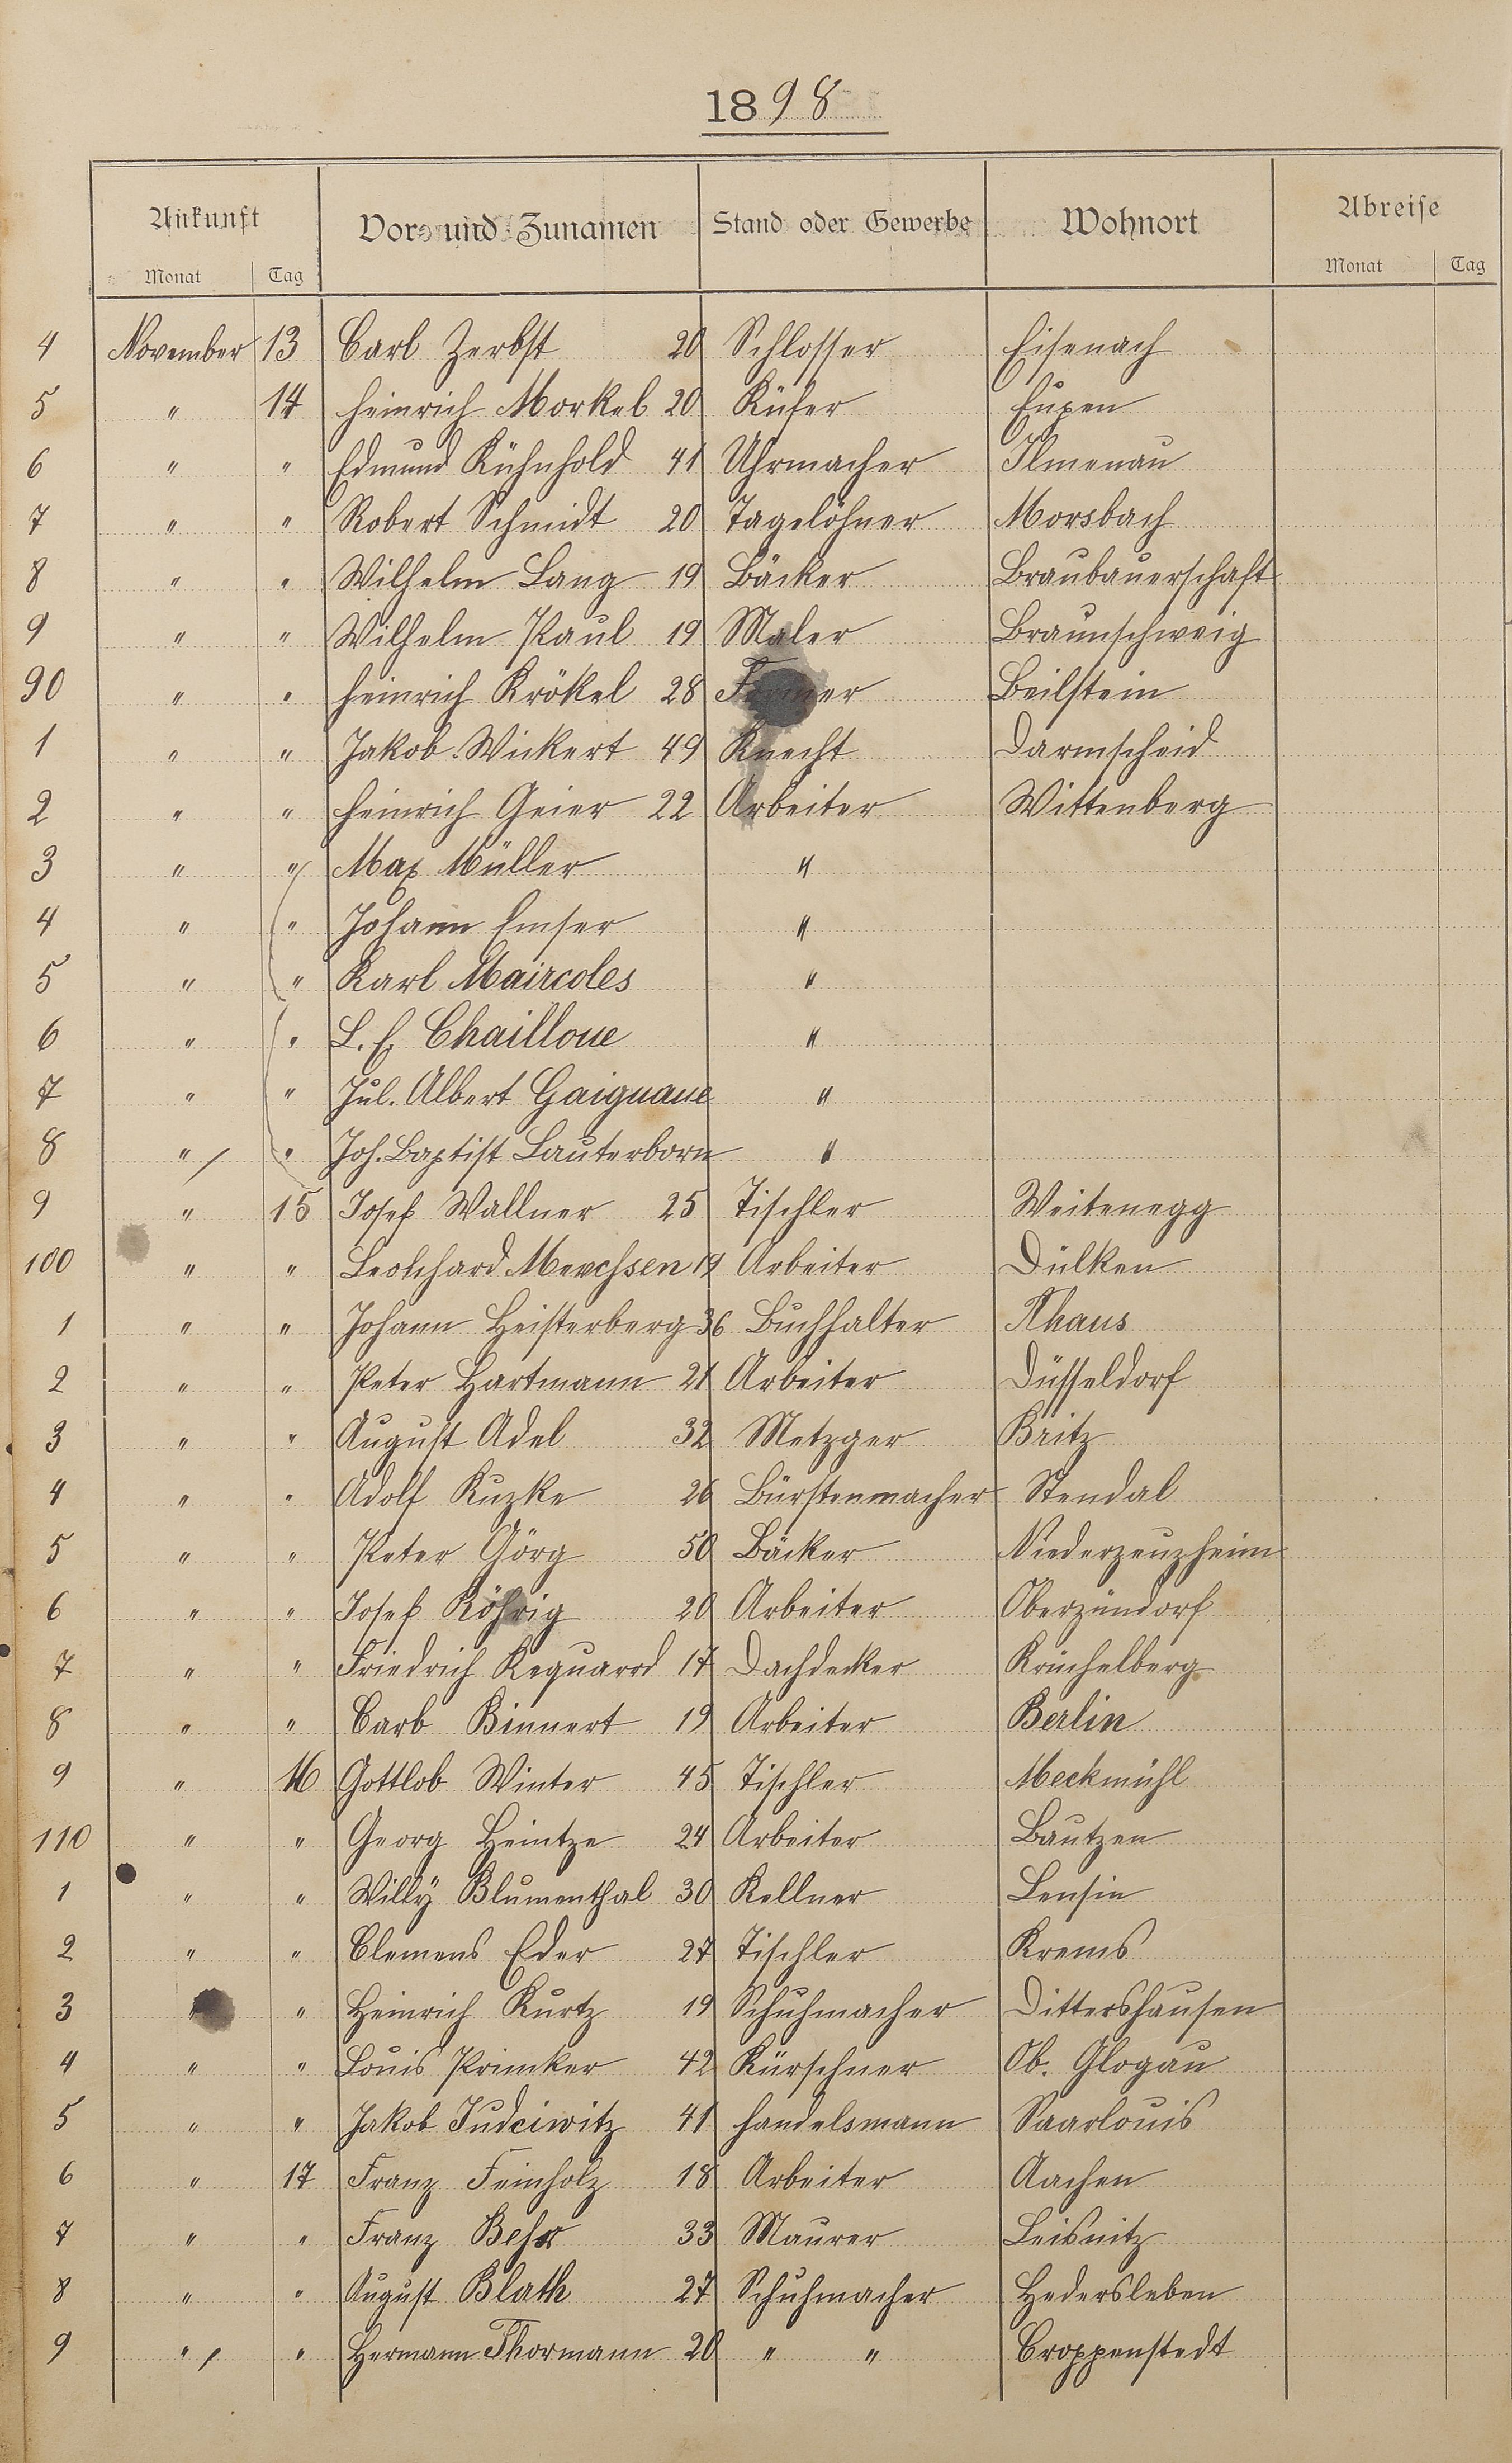 1898
Ankunft Vor- und Zunamen Stand oder Gewerbe Wohnort Abreise
Monat Tag Monat Tag
4 November 13 Carl Zerbst 20 Schlosser Eisenach
5 " 14 Heinrich Morkel 20 Küfer Eupen
6 " " Edmund Kühnhold 41 Uhrmacher Ilmenau
7 " " Robert Schmidt 20 Tagelöhner Morsbach
8 " " Wilhelm Lang 19 Bäcker Braubauerschaft
9 " " Wilhelm Paul 19 Maler Braunschweig
90 " " Heinrich Krökel 28 Former Beilstein
1 " " Jakob Wickert 49 Knecht Darmscheid
2 " " Heinrich Geier 22 Arbeiter Wittenberg
3 " " Max Müller "
4 " " Johann Emser "
5 " " Karl Maircoles "
6 " " L. E. Chailloue "
7 " " Jul. Albert Gaignaue "
8 " " Joh. Baptist Lauterborn "
9 " 15 Josef Wallner 25 Tischler Weitenegg
100 " " 19 Arbeiter Dülken
1 " " Johann Heisterberg 36 Buchhalter Ahaus
2 " " Peter Hartmann 21 Arbeiter Düsseldorf
3 " " August Adel 32 Metzger Britz
4 " " Adolf Kuzke 26 Bürstenmacher Stendal
5 " " Peter Görg 50 Bäcker Niederzeuzheim
6 " " Josef Röhrig 20 Arbeiter Oberzündorf
7 " " Friedrich Requard 17 Dachdecker
8 " " Carl Binnert 19 Arbeiter Berlin
9 " 16 Gottlob Winter 45 Tischler Meckmühl
110 " " Georg Heintze 24 Arbeiter Bautzen
1 " " Willy Blumenthal 30 Kellner Lensin
2 " " Clemens Eder 27 Tischler Krems
3 " " Heinrich Kurtz 19 Schuhmacher Dittershausen
4 " " Louis Primker 42 Kürschner Ob. Glogau
5 " " Jakob Judciwitz 41 Handelsmann Saarlouis
6 " 17 Franz Feinholz 18 Arbeiter Aachen
7 " " Franz Behr 33 Maurer Leisnitz
8 " " August Blath 27 Schuhmacher Hedersleben
9 " " Hermann Thormann 20 " " Croppenstedt